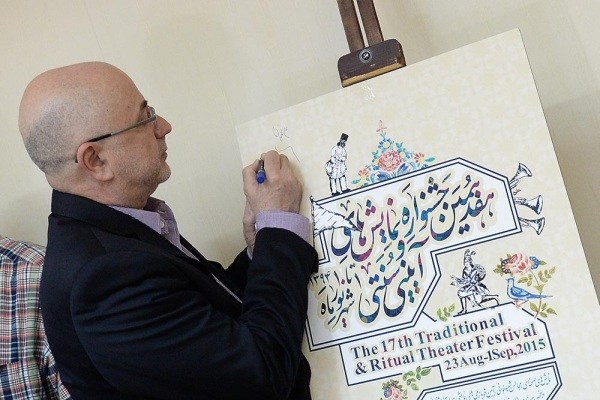 هفدهمین جشنواره نمایش‌های
آیینی و سنتی
شهریور ماه ۱۳۹۴
The 17th Traditional
& Ritual Theater Festival
23Aug-1Sep, 2015